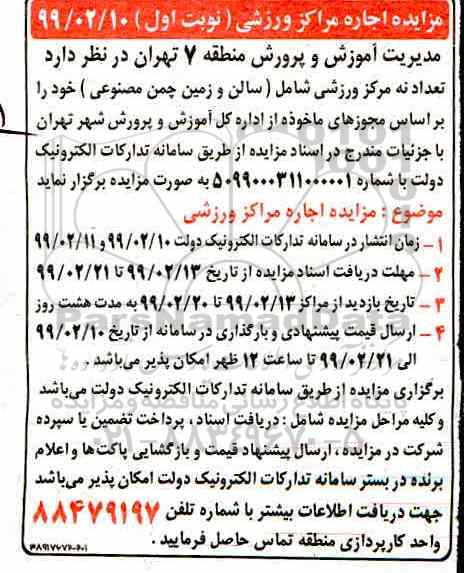 مزایده اجاره مراکز ورزشی ( نوبت اول ) ۹۹/۰۲/۱۰
مدیریت آموزش و پرورش منطقه ۷ تهران در نظر دارد
تعداد نه مرکز ورزشی شامل ( سالن و زمین چمن مصنوعی ) خود را
بر اساس مجوزهای ماخوذه از اداره کل آموزش و پرورش شهر تهران
با جزئیات مندرج در اسناد مزایده از طریق سامانه تدارکات الکترونیک
دولت با شماره ۵۰۹۹۰۰۰۳۱۱۰۰۰۰۰۱ به صورت مزایده برگزار نماید
موضوع : مزایده اجاره مراکز ورزشی
۱ - زمان انتشار در سامانه تدارکات الکترونیک دولت ۹۹/۰۲/۱۰ و ۹۹/۰۲/۱۱
۲ - مهلت دریافت اسناد مزایده از تاریخ ۹۹/۰۲/۱۳ تا ۹۹/۰۲/۲۱
۳ - تاریخ بازدید از مراکز ۹۹/۰۲/۱۳ تا ۹۹/۰۲/۲۰ به مدت هشت روز
۴ - ارسال قیمت پیشنهادی و بارگذاری در سامانه از تاریخ ۹۹/۰۲/۱۰
الی ۹۹/۰۲/۲۱ تا ساعت ۱۲ ظهر امکان پذیر می‌باشد .
برگزاری مزایده از طریق سامانه تدارکات الکترونیک دولت می‌باشد
و کلیه مراحل مزایده شامل : دریافت اسناد ، پرداخت تضمین یا سپرده
شرکت در مزایده ، ارسال پیشنهاد قیمت و بازگشایی پاکت‌ها و اعلام
برنده در بستر سامانه تدارکات الکترونیک دولت امکان پذیر می‌باشد
جهت دریافت اطلاعات بیشتر با شماره تلفن ۸۸۴۷۹۱۹۷
واحد کارپردازی منطقه تماس حاصل فرمایید .
ParsNamadData
پایگاه اطلاع رسانی مناقصه و مزایده
۰۲۱-۸۸۳۴۹۶۷۰-۵